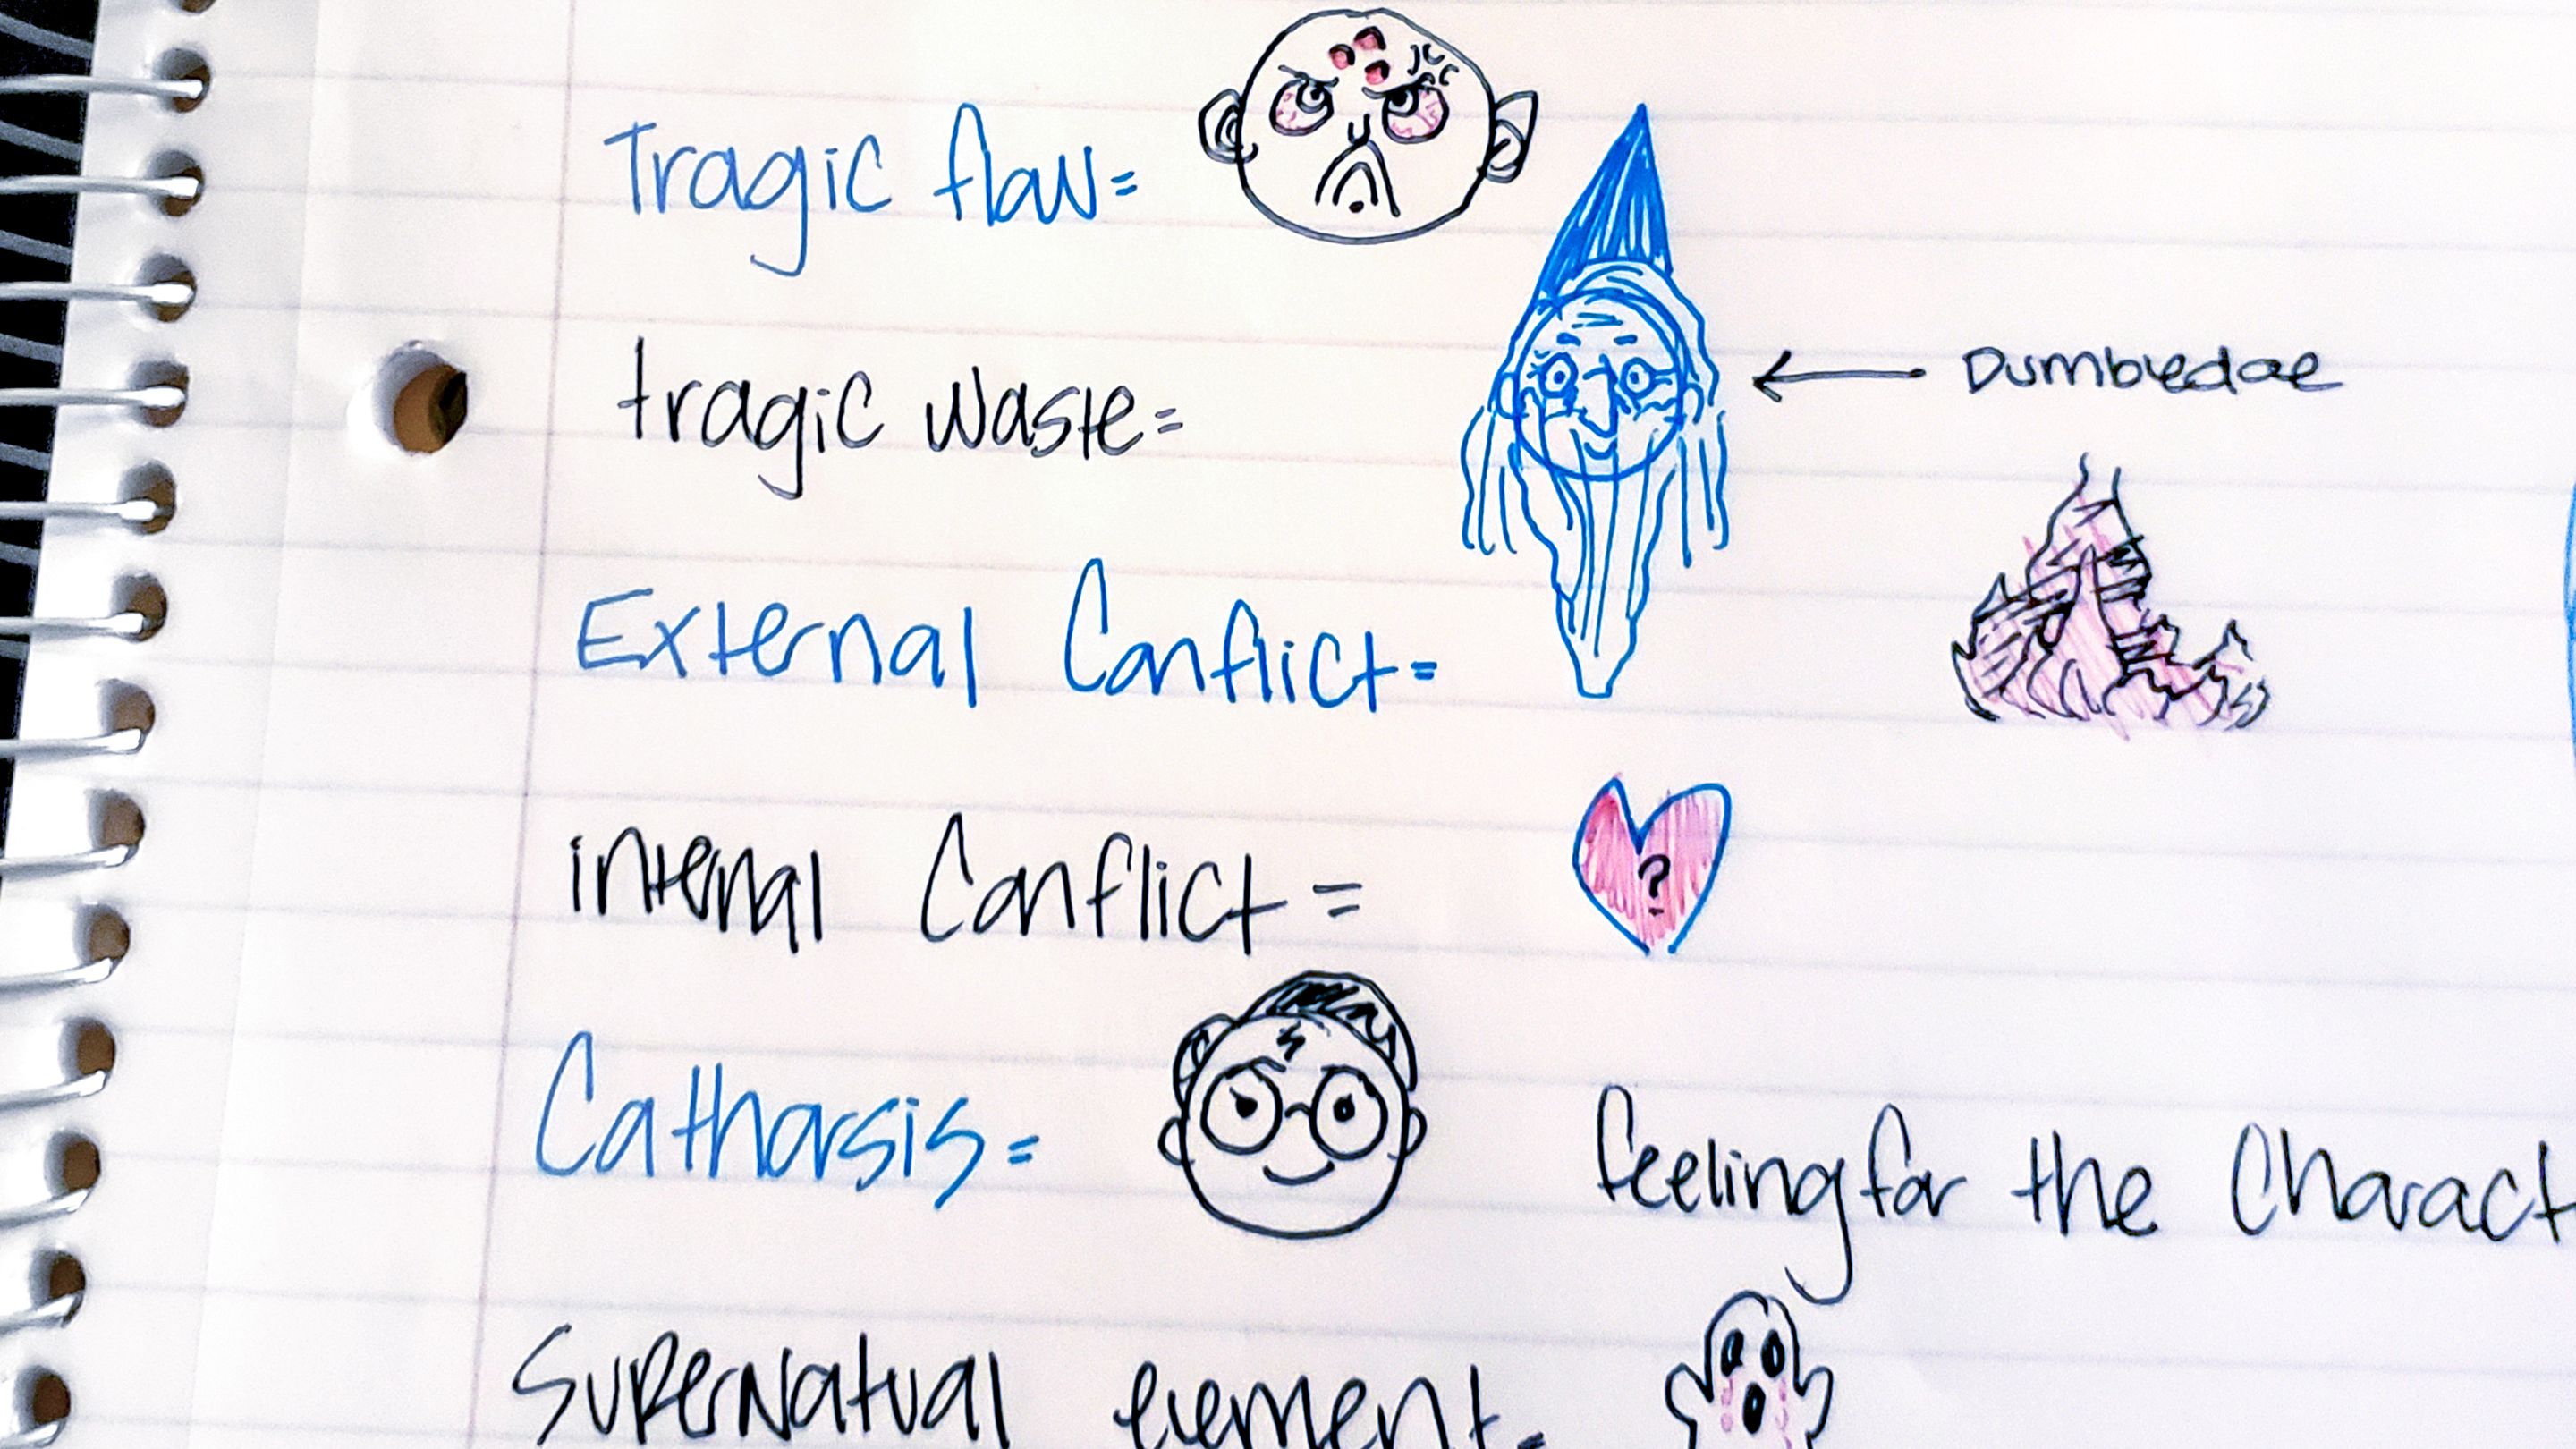 Tragic flaw=
tragic waste=
Dumbledore
External Conflict=
internal Conflict =
?
Catharsis=
feeling for the Charact
Supernatual element=